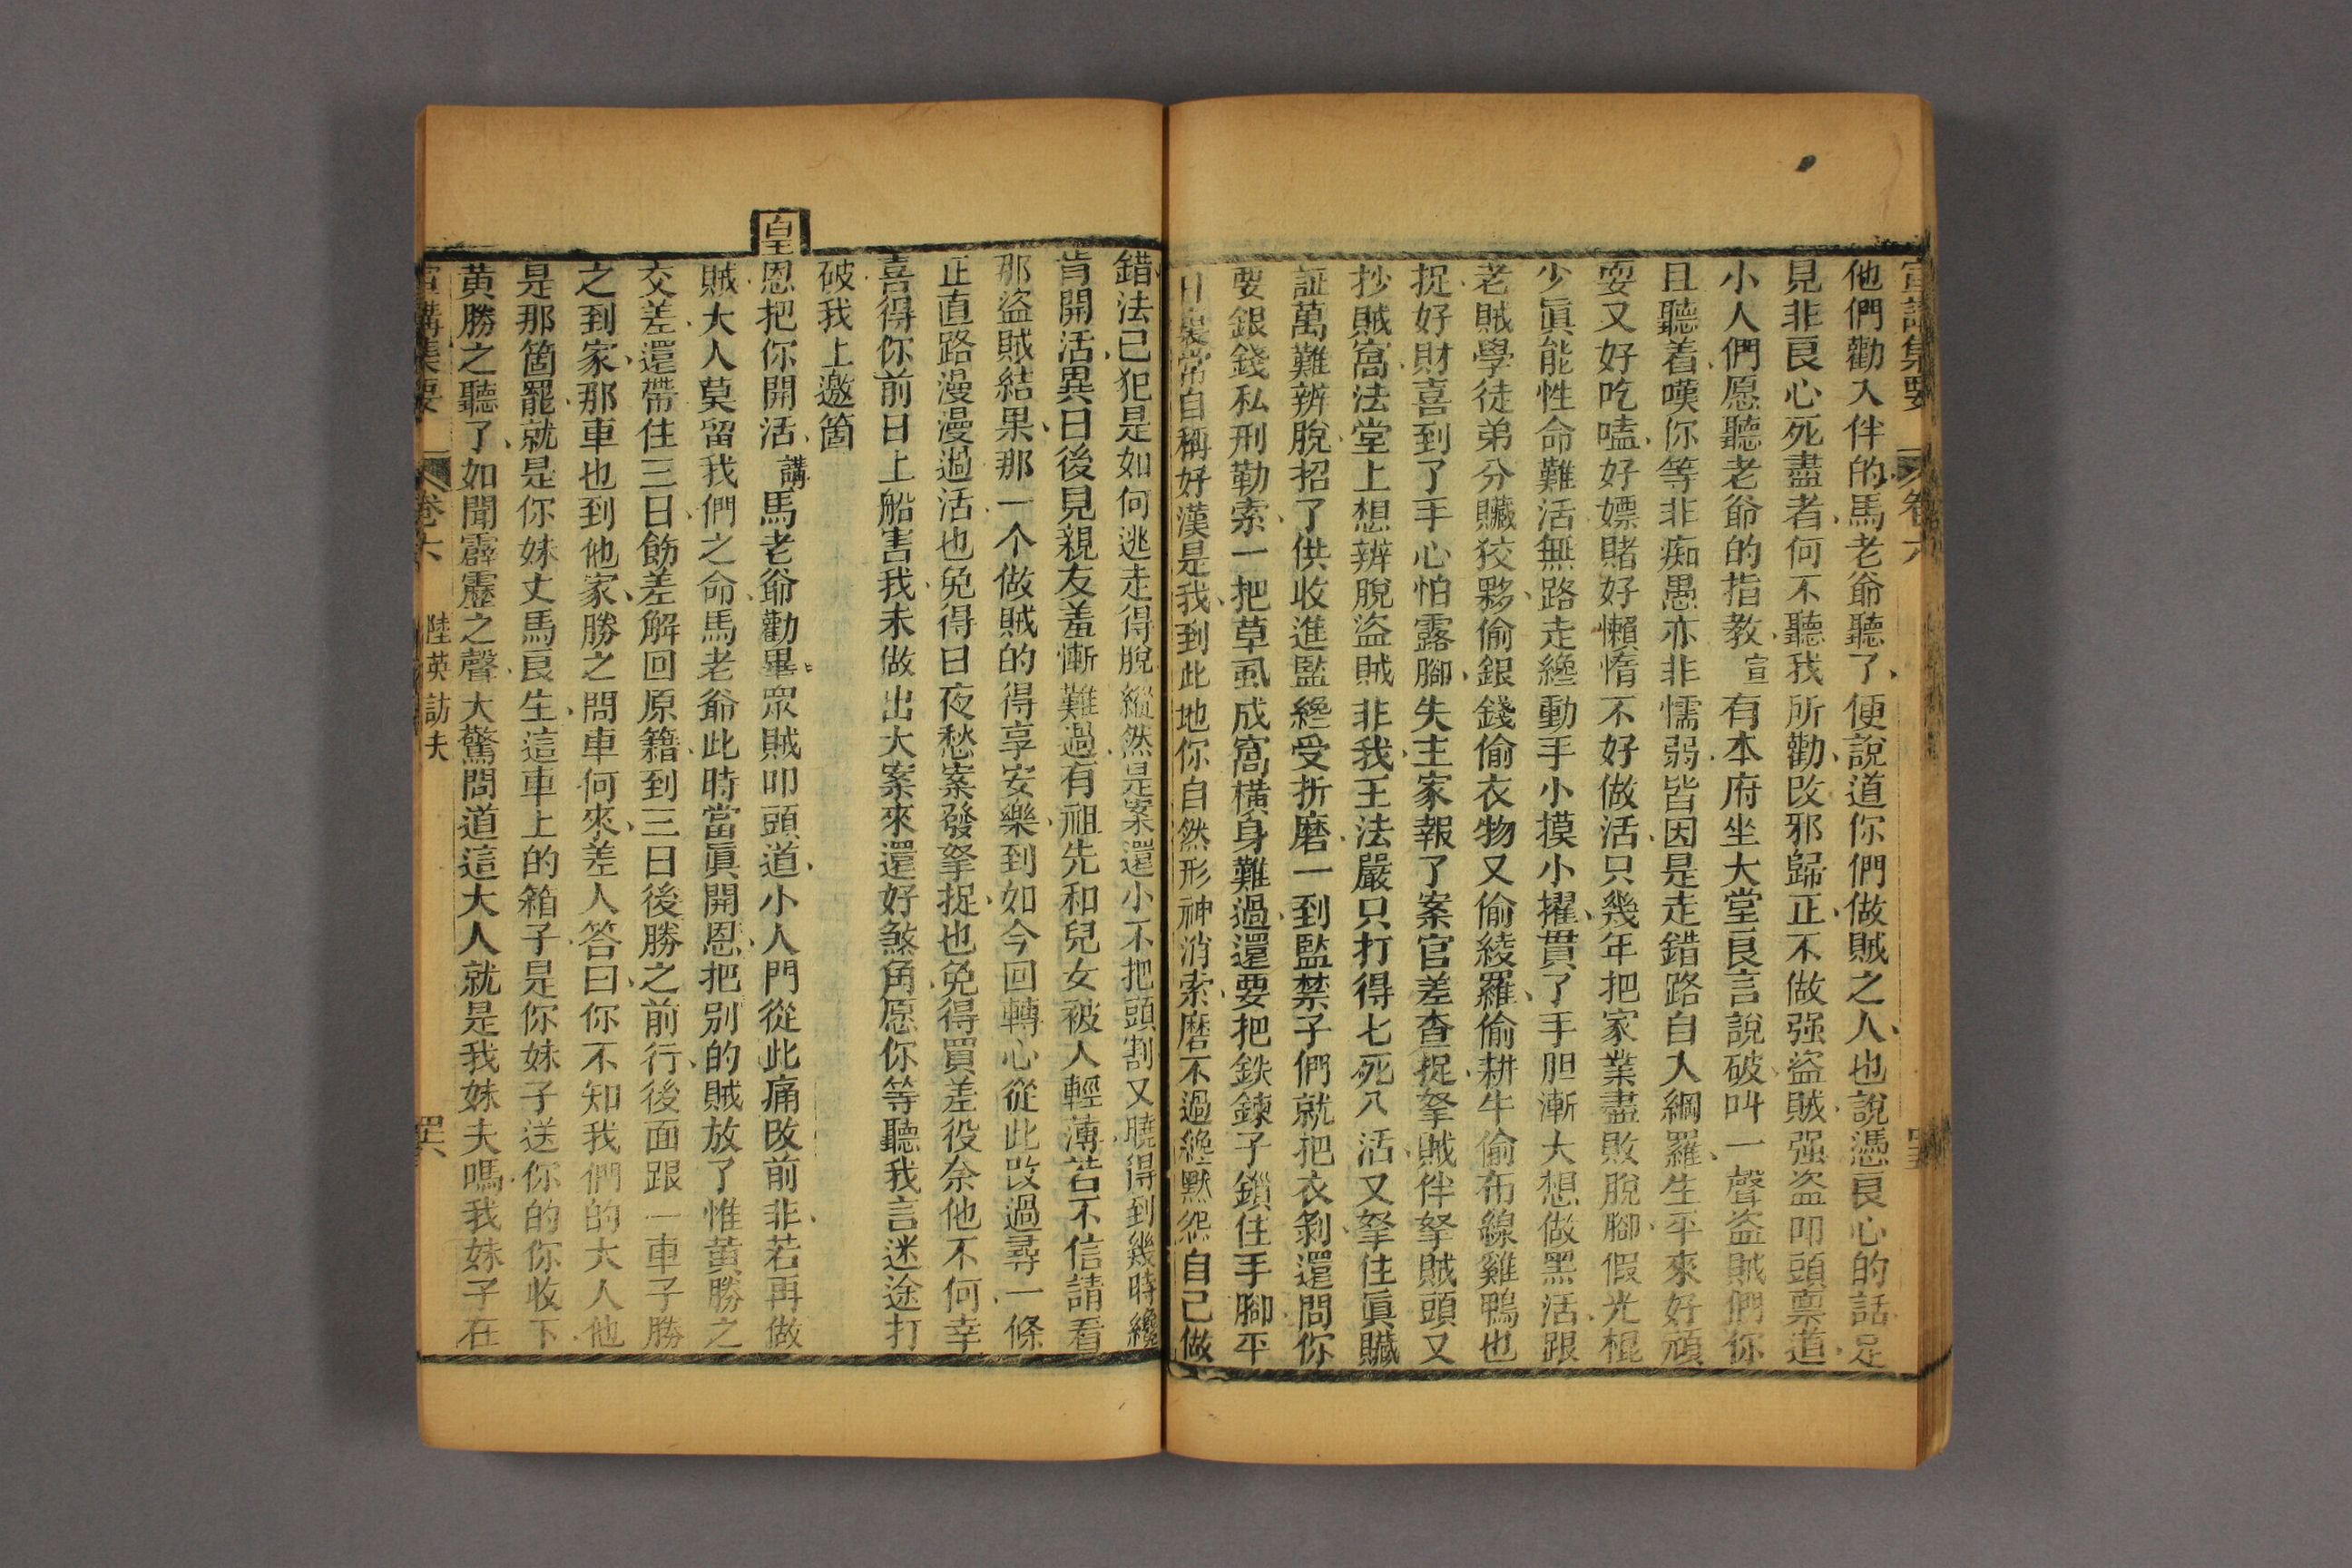 宣講集要 卷六
他們勸入伴的馬老爺聽了便說道你們做賊之人也說憑良心的話足
見非良心死盡者何不聽我所勸改邪歸正不做强盜賊强盜叩頭禀道
小人們愿聽老爺的指教宣有本府坐大堂良言說破叫一聲盜賊們你
且聽着嘆你等非痴愚亦非懦弱皆因是走錯路自入網羅生平來好頑
耍又好吃嗑好嫖賭好懶惰不好做活只幾年把家業盡敗脫腳假光棍
少眞能性命難活無路走纔動手小摸小擢貫了手胆漸大想做黑活跟
老賊學徒弟分贜狡夥偷銀錢偷衣物又偷綾羅偷耕牛偷布線雞鴨也
捉好財喜到了手心怕露腳失主家報了案官差查捉拏賊伴拏賊頭又
抄賊窩法堂上想辨脫盜賊非我王法嚴只打得七死八活又拏住眞贜
証萬難辨脫招了供收進監纔受折磨一到監禁子們就把衣剝還問你
要銀錢私刑勒索一把草虱成窩橫身難過還要把鉄鍊子鎻住手腳平
日裝常自稱好漢是我到此地你自然形神消索磨不過纔默怨自己做
錯法已犯是如何逃走得脫縱然是案還小不把頭割又曉得到幾時纔
肯開活異日後見親友羞慚難過有祖先和兒女被人輕薄若不信請看
那盜賊結果那一个做賊的得享安樂到如今回轉心從此改過尋一條
正直路漫漫過活也免得日夜愁案發拏捉也免得買差役奈他不何幸
喜得你前日上船害我未做出大案來還好煞角愿你等聽我言迷途打
破我上邀箇
皇恩把你開活講馬老爺勸畢眾賊叩頭道小人門從此痛改前非若再做
賊大人莫留我們之命馬老爺此時當眞開恩把别的賊放了惟黄勝之
交差還帶住三日飭差解回原籍到三日後勝之前行後面跟一車子勝
之到家那車也到他家勝之問車何來差人答曰你不知我們的大人他
是那箇罷就是你妹丈馬良生這車上的箱子是你妹子送你的你收下
黄勝之聽了如聞霹靂之聲大驚問道這大人就是我妹夫嗎我妹子在
宣講集要 卷六 陸英訪夫 罒六